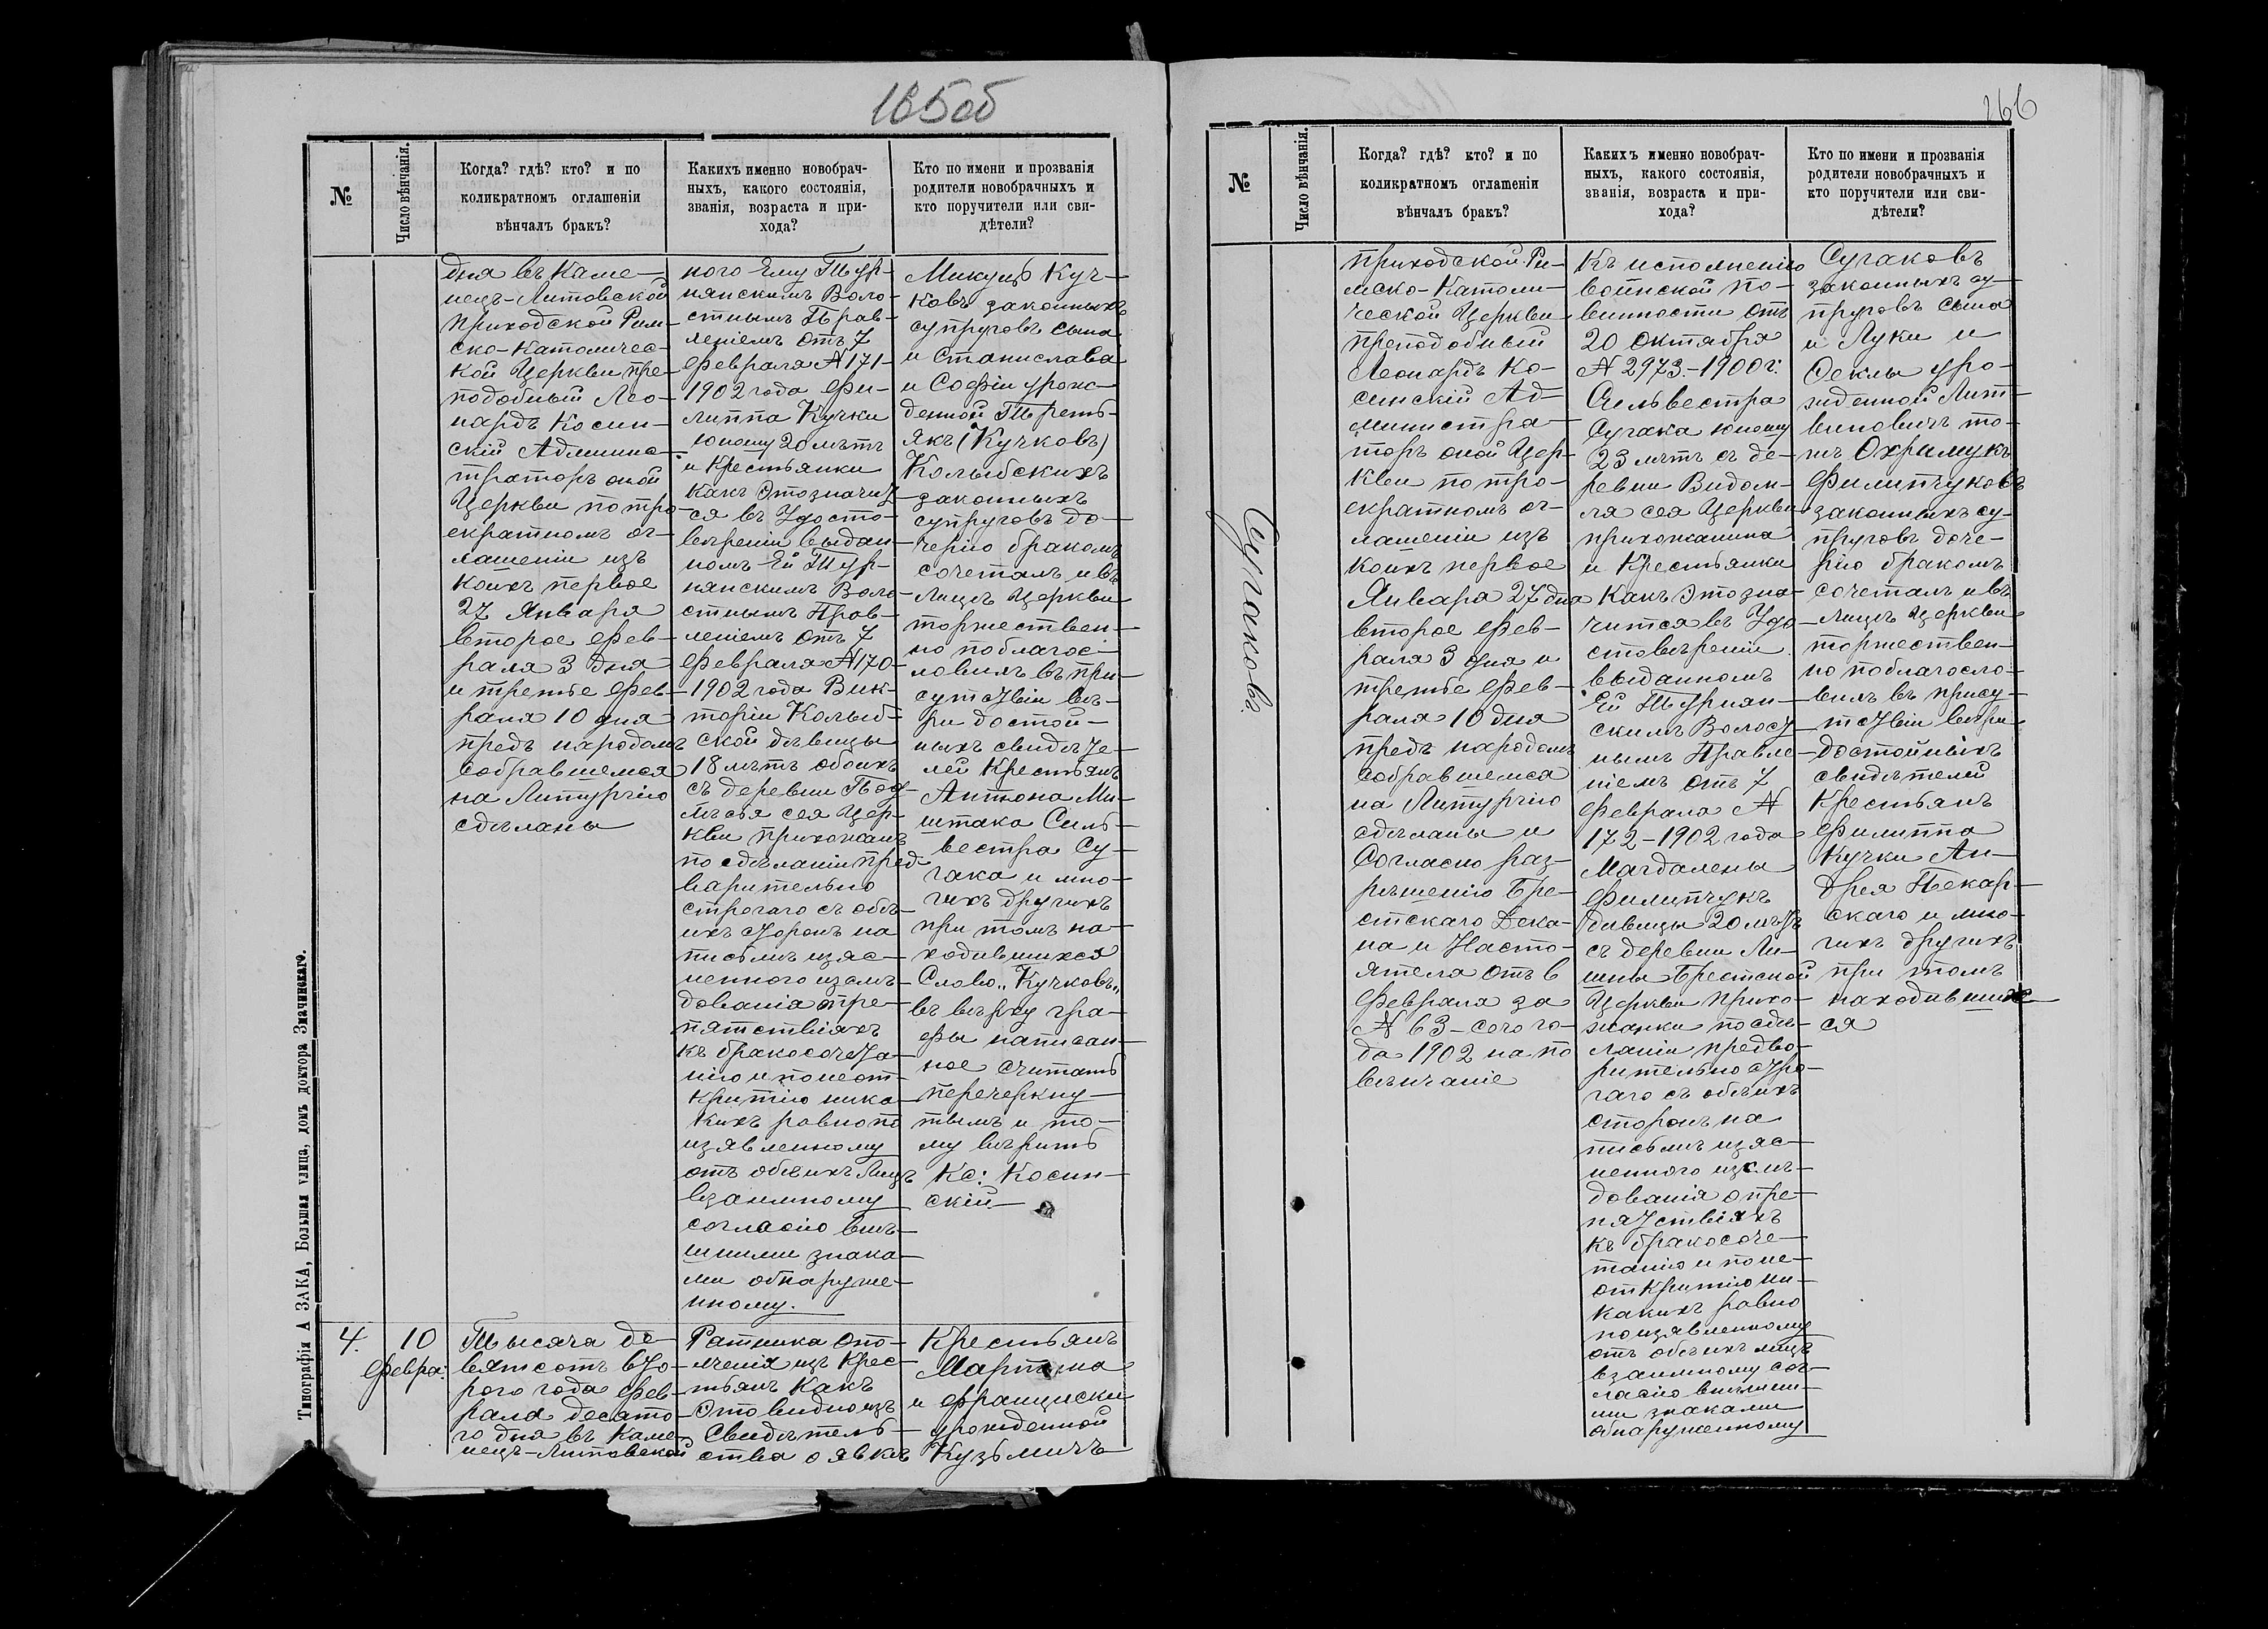 165об
№
Число вѣнчанія.
Когда? гдѣ? кто? и по
коликратномъ оглашеніи
вѣнчалъ бракъ?
Какихъ именно новобрач-
ныхъ, какого состоянія,
званія, возраста и при-
хода?
Кто по имени и прозванія
родители новобрачныхъ и
кто поручители или сви-
дѣтели?
дня въ Каме-
нецъ-Литовской
приходской Рим-
ско-Католичес-
кой Церкви пре-
подобный Лео-
нардъ Косин-
скій Админис-
траторъ оной
Церкви по тро-
екратномъ ог-
лашеніи изъ
коихъ первое
27 Января
второе Фев-
раля 3 дня
и третье Фев-
раля 10 дня
предъ народомъ
собравшемся
на Литургію
сдѣланы
ного Ему Тур-
нянскимъ Воло-
стнымъ Прав-
леніемъ отъ 7
Февраля N 171-
1902 года Фи-
липпа Кучки
юношу 20 лѣтъ
и Крестьянки
какъ Этозначит-
ся въ Удосто-
вѣреніи выдан-
номъ Ей Тур-
нянскимъ Воло-
стнымъ Прав-
леніемъ отъ 7
Февраля N 170-
1902 года Вик-
торіи Колыб-
ской дѣвицы
18 лѣтъ обоихъ
съ деревни Под-
лѣсья сея Цер-
кви прихожанъ
по сдѣланіи пред-
варительно
строгаго съ обѣ-
ихъ сторонъ на
письмѣ изяс-
неннаго изслѣ-
дованія о пре-
пятствіяхъ
къ бракосочета-
нію и по неот-
критію ника-
кихъ равно по
изявленному
отъ обѣихъ лицъ
взаимному
согласію внѣ-
шними знака-
ми обнаруже-
нному.
Микуцъ Куч-
ковъ законныхъ
супруговъ сына
и Станислава
и Софіи урож-
денной Треть-
якъ (Кучковъ)
Колыбскихъ
законныхъ
супруговъ до-
черію бракомъ
сочеталъ и въ
Лицѣ Церкви
торжествен-
но поблагос-
ловилъ въ при-
сутствіи вѣ-
ри достой-
ныхъ свидѣте-
лей Крестьянъ
Антона Ми-
штака Силь-
вестра Су-
гака и мно-
гихъ другихъ
при томъ на-
ходившихся
Слово „Кучковъ„
въ верху гра-
фы написан-
ное считать
перечеркну-
тымъ и то-
му вѣрить
Кс: Косин-
скій
4.
10
Февра:
Тысяча де-
вятсотъ вто-
рого года Фев-
раля десято-
го дня въ Каме-
нецъ-Литовской
Ратника опо-
лченія изъ Крес-
тьянъ какъ
Это видно изъ
Свидѣтель-
ства о явкѣ
Крестьянъ
Мартина
и Франциски
урожденной
Кузьмичъ
Типографія А ЗАКА, Большая улица, домъ доктора Значинскаго.
166
№
Число вѣнчанія.
Когда? гдѣ? кто? и по
коликратномъ оглашеніи
вѣнчалъ бракъ?
Какихъ именно новобрач-
ныхъ, какого состоянія,
званія, возраста и при-
хода?
Кто по имени и прозванія
родители новобрачныхъ и
кто поручители или сви-
дѣтели?
Сугаковъ.
приходской Ри-
мско-Католи-
ческой Церкви
преподобный
Леонардъ Ко-
синскій Ад-
министра-
торъ оной Цер-
кви по тро-
екратномъ ог-
лашеніи изъ
коихъ первое
Января 27 дня
второе Фев-
раля 3 дня и
третье Фев-
раля 10 дня
предъ народомъ
собравшемся
на Литургію
сдѣланы и
Согласно раз-
рѣшенію Бре-
стскаго Дека-
на и Насто-
ятеля отъ 6
Февраля за
N 63-сего го-
да 1902 на по
вѣнчаніе
Къ исполненію
воинской по-
винности отъ
20 Октября
N 2973.-1900г:
Сильвестра
Сугака юношу
23 лѣтъ съ де-
ревни Видом-
ля сея Церкви
прихожанина
и Крестьянки
Какъ Этозна-
чится въ Удо-
стовѣреніи
выданномъ
Ей Турнян-
скимъ Волост-
нымъ Правле-
ніемъ отъ 7
Февраля N
172-1902 года
Магдалены
Филипчукъ
дѣвицы 20 лѣтъ
съ деревни Ли-
шны Брестской
Церкви прихо-
жанки по сдѣ-
ланіи предва-
рительно стро-
гаго съ обѣихъ
сторонъ на
письмѣ изяс-
неннаго изслѣ-
дованія о пре-
пятствіяхъ
къ бракосоче-
танію и по не-
открытію ни-
какихъ равно
по изявленному
отъ обѣихъ лицъ
взаимному сог-
ласію внѣшни-
ми знаками
обнаруженному
Сугаковъ
законныхъ су-
пруговъ сына
и Луки и
Феклы уро-
жденной Лит-
виновичъ то-
жъ Охримукъ
Филипчуковъ
законныхъ су-
пруговъ доче-
рію бракомъ
сочеталъ и въ
Лицѣ Церкви
торжествен-
но поблагосло-
вилъ въ прису-
тствіи вѣри-
достойныхъ
свидѣтелей
Крестьянъ
Филиппа
Кучки Ан-
дрея Пекар-
скаго и мно-
гихъ другихъ
при томъ
находивших
ся